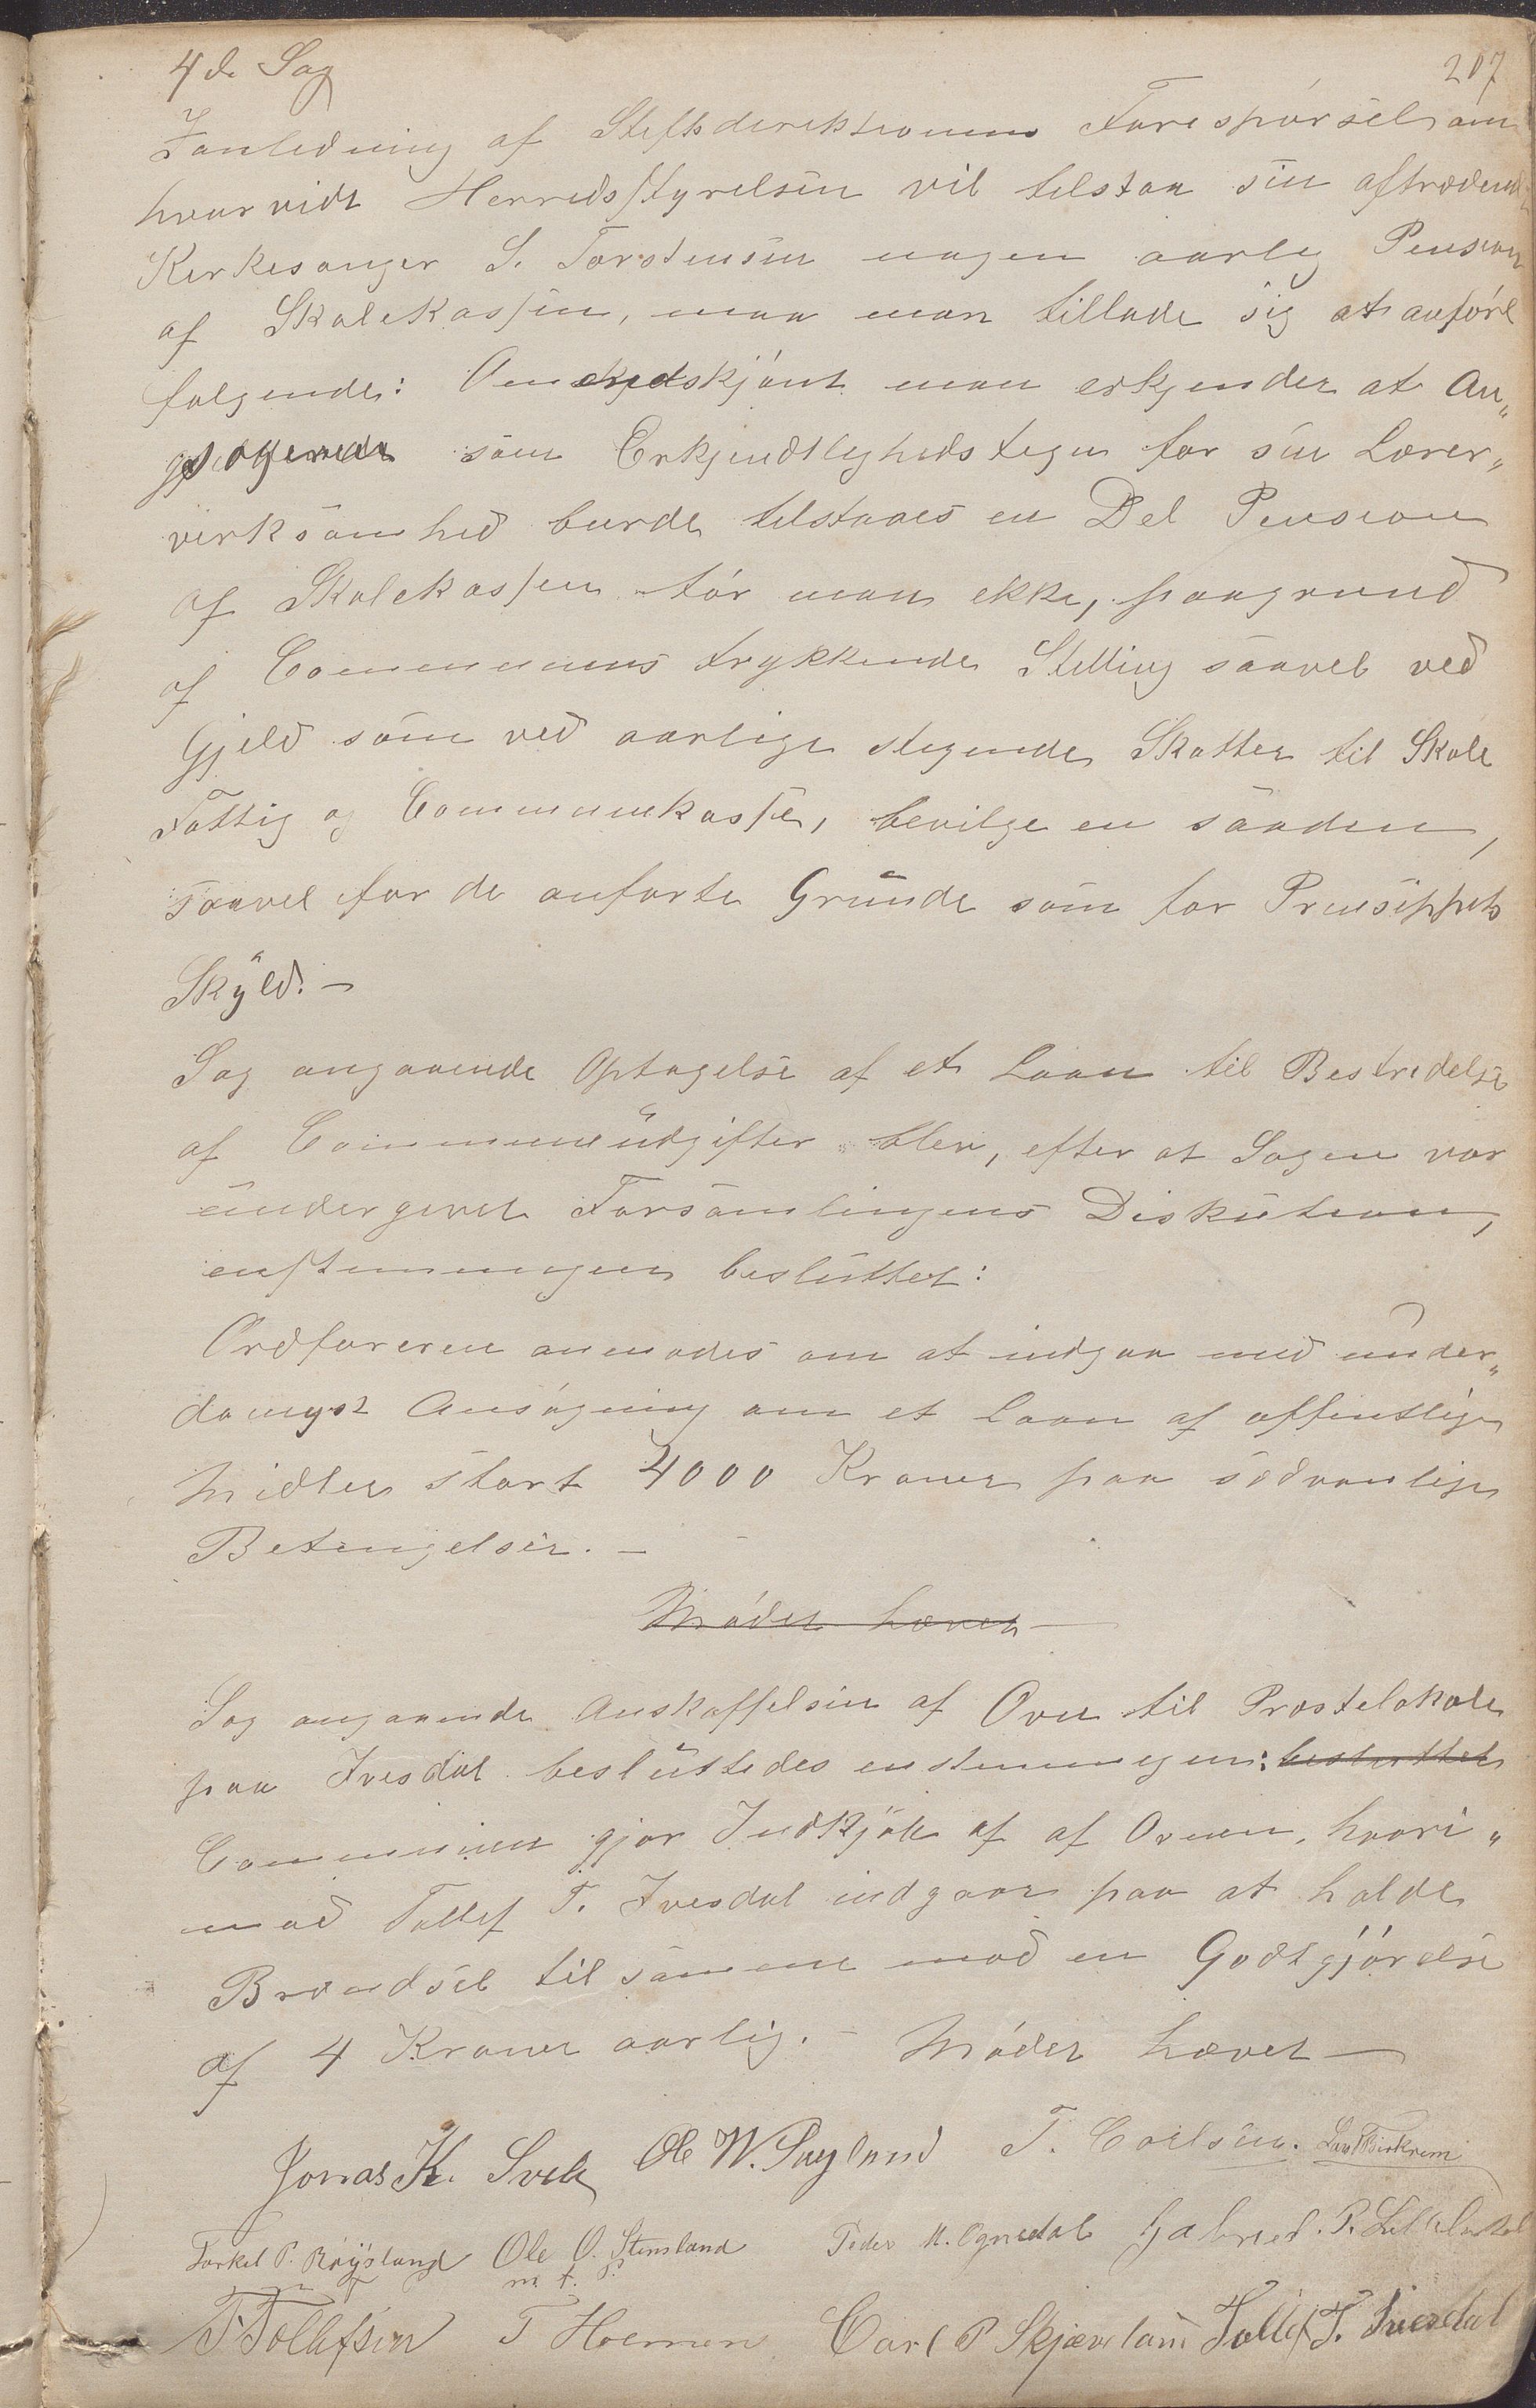 4de Sag
207
I anledning af Stiftsdirektionens Forespørsel om
hvorvidt Herredsstyrelsen vil tilstaa sin aftrædende
Kirkesanger S. Torstensen nogen aarlig Pension
af Skolekassen, maa man tillade sig at anføre
følgende: Omendskjønt man erkjender at An„
søgende som Erkjendtlighedstegn for sin Lærer„
virksomhed burde tilstaaes en Del Pension
af Skolekassen tør man ikke, paagrund
af Communens trykkende Stilling saavel ved
Gjeld som ved aarlige stigende Skatter til Skole
Fattig og Communekasse, bevilge en saadan,
saavel for de anførte Grunde som for Prinsippets
Skyld. —
Sag angaaende Optagelse af et Laan til Bestridelse
af Communeudgifter blev, efter at Sagen var
undergivet Forsamlingens Diskution,
enstemmigen besluttet:
Ordføreren anmodes om at indgaa med under„
danigst Ansøgning om et Laan af offentlige
Midler stort 4000 Kroner paa sedvanlige
Betingelser. —
Mødet hævet
Sag angaaende Anskaffelsen af Ovn til Prostelokale
paa Ivesdal besluttedes enstemmigen: besluttet
Communen gjør Indkjøb af af Ovnen, hvori„
mod Tollef T. Ivesdal indgaar paa at holde
Brændsel til samme mod en Godtgjørelse
af 4 Kroner aarlig. — Mødet hævet —
Jonas K. Svele Ole W. Søyland T. Carlsen. Lars Birkrem
Torkel P. Røysland Ole O. Stensland Peder M. Ognedal Gabriel P. Lille
m. t. P.
T Tollefsen T Hoemen Carl P Skjæveland Tollef T. Ivesdal